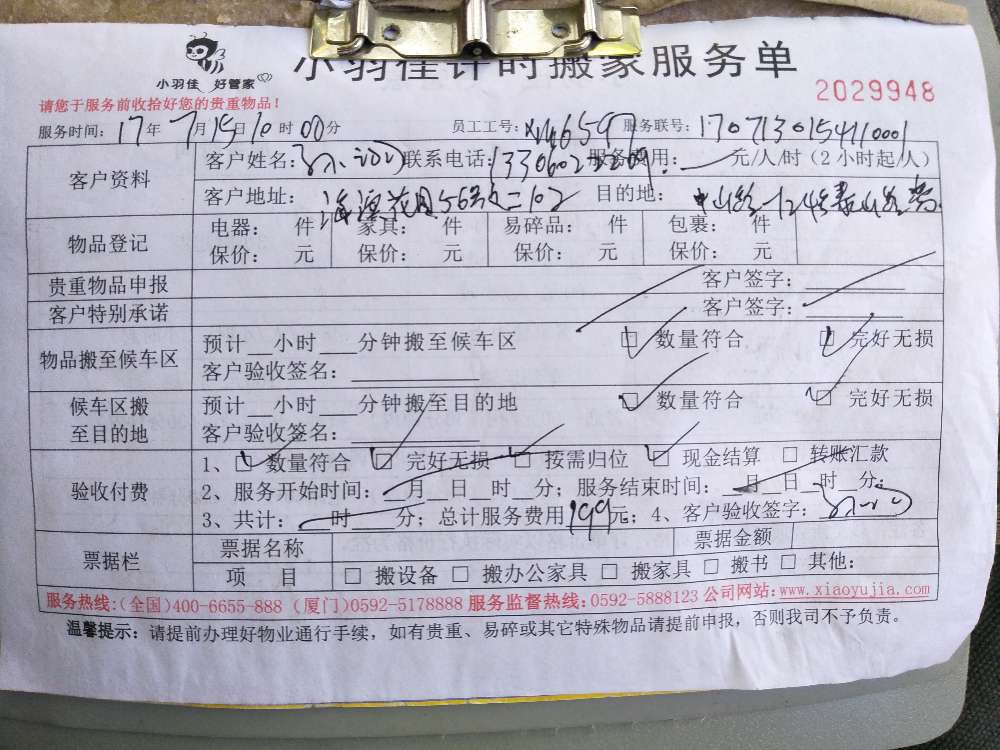 小羽佳 好管家
小羽佳计时搬家服务单
2029948
请您于服务前收拾好您的贵重物品！
服务时间：17年7月15日10时00分 员工工号： 服务联号：1707130154110001
客户资料 客户姓名： 联系电话： 服务费用：元/人/时（2小时起/人）
客户地址： 目的地：
物品登记 电器： 件 家具： 件 易碎品： 件 包裹： 件
保价： 元 保价： 元 保价： 元 保价： 元
贵重物品申报 客户签字：
客户特别承诺 客户签字：
物品搬至候车区 预计__小时___分钟搬至候车区 □ 数量符合 □ 完好无损
客户验收签名：
候车区搬至目的地 预计__小时___分钟搬至目的地 □ 数量符合 □ 完好无损
客户验收签名：
验收付费 1、□ 数量符合 □ 完好无损 □ 按需归位 □ 现金结算 □ 转账汇款
2、服务开始时间：__月__日__时__分；服务结束时间：__月__日__时__分；
3、共计：___时___分；总计服务费用199元；4、客户验收签字：
票据栏 票据名称 票据金额
项 目 □ 搬设备 □ 搬办公家具 □ 搬家具 □ 搬书 □ 其他：
服务热线：（全国）400-6655-888（厦门）0592-5178888 服务监督热线：0592-5888123 公司网站：www.xiaoyujia.com
温馨提示：请提前办理好物业通行手续，如有贵重、易碎或其它特殊物品请提前申报，否则我司不予负责。